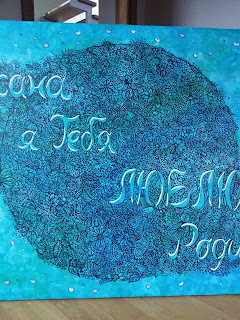 сана
я Тебя
ЛЮБЛЮ
Роди